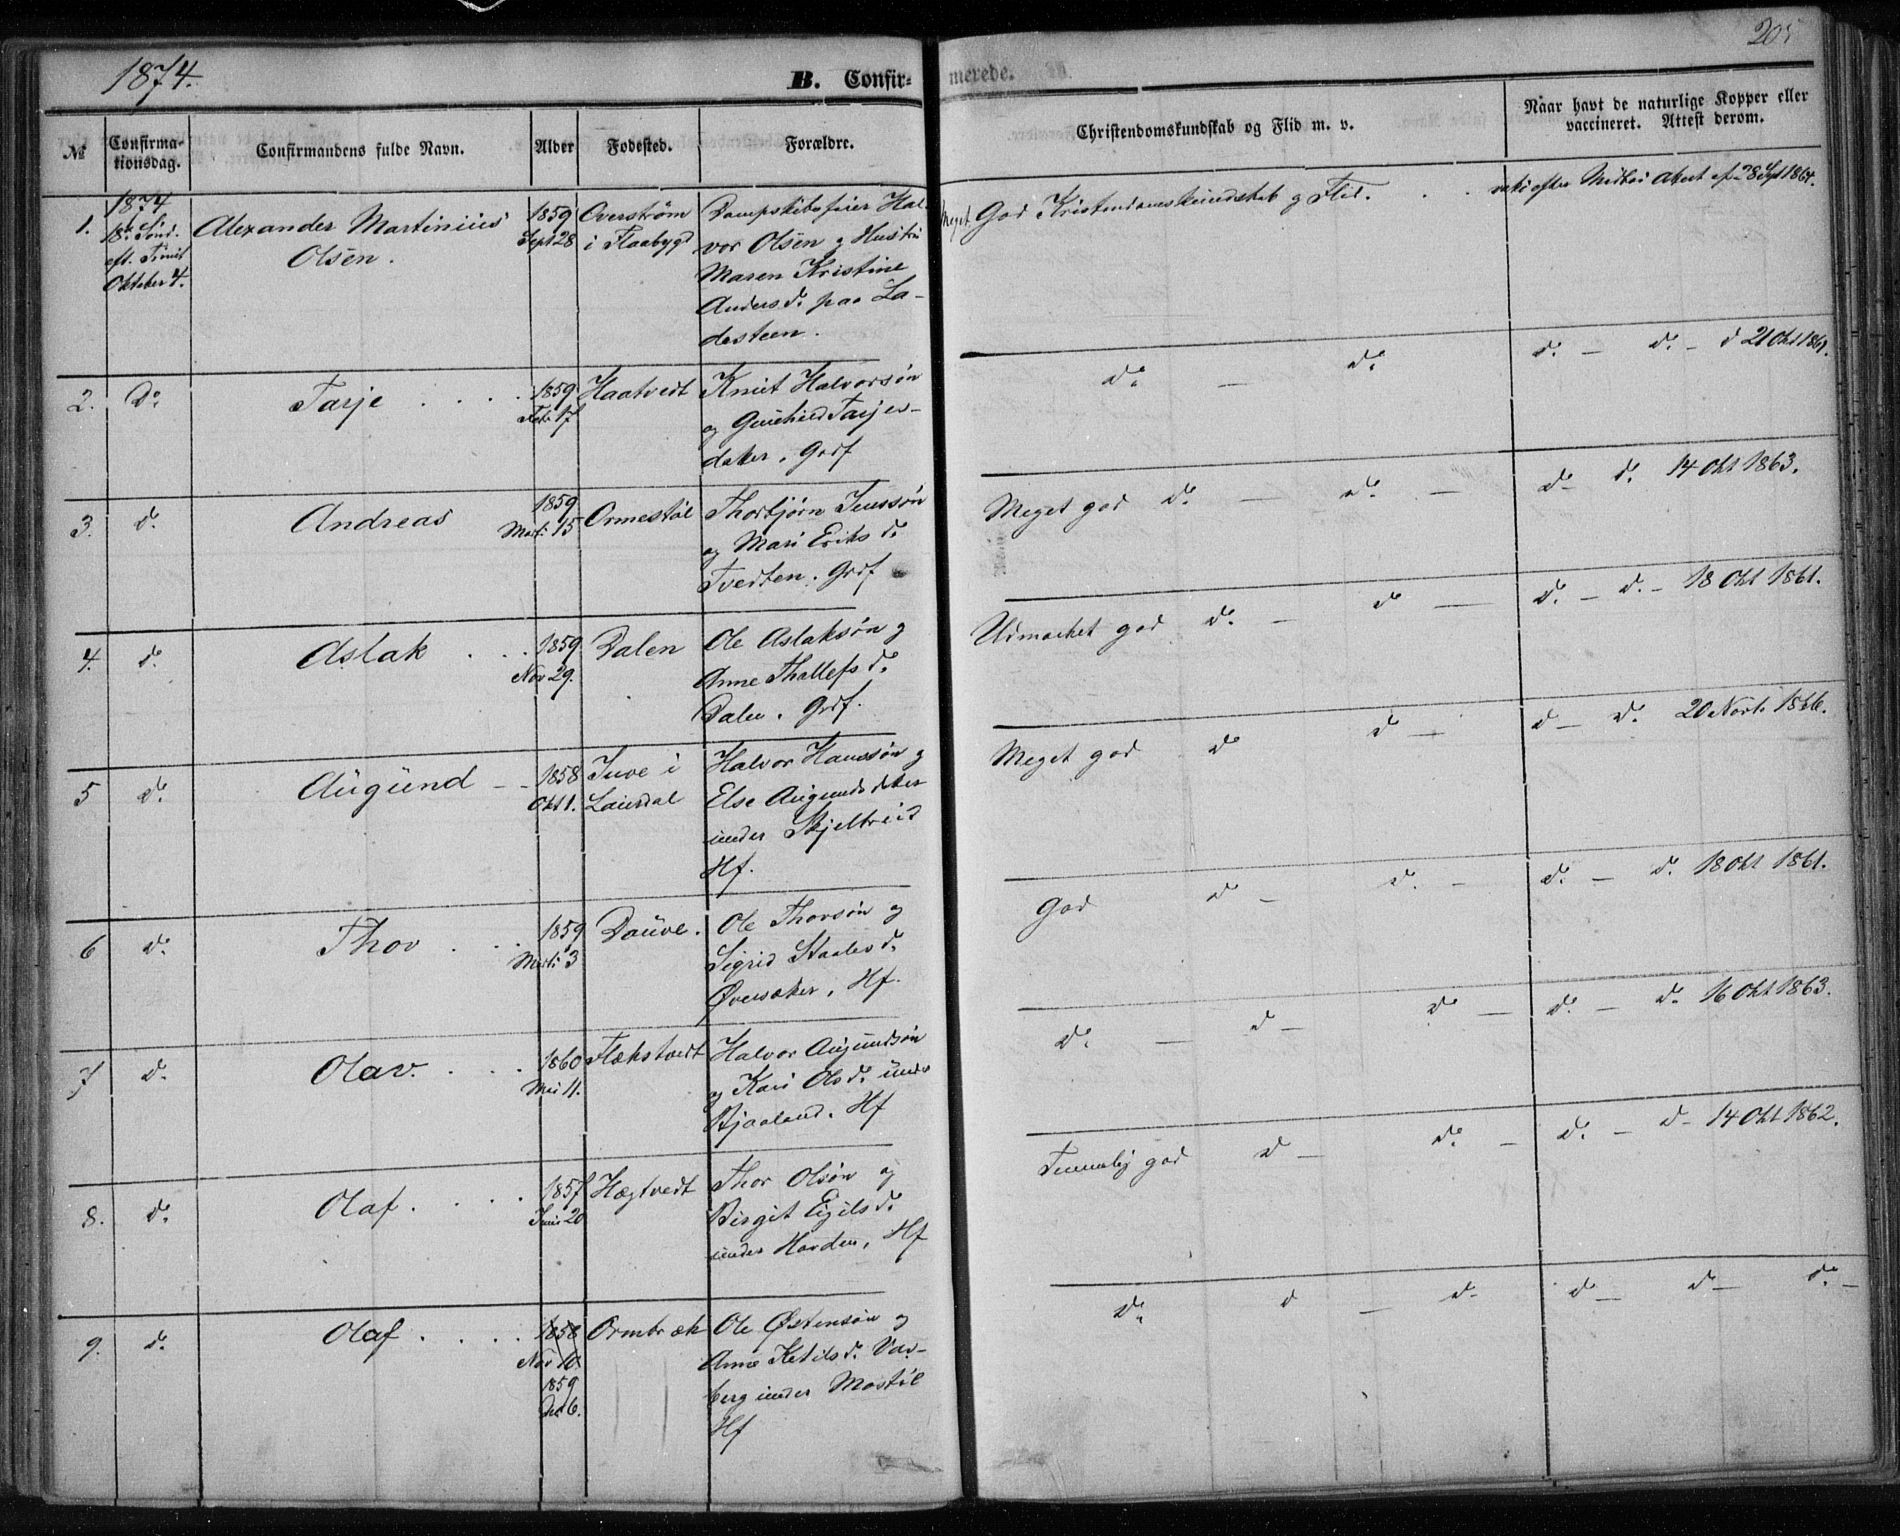 1874.
B. Confir-
merede.
205
№
Confirma-
tionsdag.
Confirmandens fulde Navn.
Alder
Fodested.
Forældre.
Christendomskundskab og Flid m. v.
Naar havt de naturlige Kopper eller
vaccineret. Attest derom.
1.
1874
18de Sönd.
eft. Trinit
Oktober 4.
Alexander Martinius
Olsen.
1859
Sept 28
Overström
i Flaabygd
Dampskibsfeier Hal-
vor Olsen og Hustru
Maren Kristine
Andersd. paa La-
desteen.
Meget God Kristendomskundskab og Flid.
vakc efter Attest af 28 Sept 1864.
2.
Do
Tarje . . . .
1859
Feb. 17
Haatvedt
Knut Halvorsön
og Gunhild Tarjes-
datter, Grdf
do — do
do — do — d 21 Okt
3.
do
Andreas
1859
Marts 15
Ormestöl
Thorbjørn Jenssön
og Mari Eriks d.
Tvedten. Grdf
Meget god do — do —
do do 14 Okt 1863.
4.
do
Aslak . . .
1859
Nov 29.
Dalen
Ole Aslaksön og
Anne Thallefs d.
Dalen. Grdf.
Udmærket god do — do —
do — do — 18 Okt 1861.
5
do
Augund - -
1858
Okt 1.
Juve i
Laurdal
Halvor Hanssön og
Else Augunds datter
under Skjelbreid
Hf.
Meget god do do —
do — do 20 1866.
6
do
Thov . . .
1859
Marts 3
Dauve.
Ole Thorsön og
Sigrid Staalesd.
Øversaker, Hf.
God do — do —
do — do 18 Okt 1861.
7
do
Olav. . . .
1860
Mai 11.
Flekstvedt
Halvor Augundsön
og Kari Ols d. under
Bjaaland. Hf
do — do — do —
do — do 16 Okt 1863.
8.
do
Olaf. . . .
1857
Juni 20
Hægtvedt
Thor Olsön og
Birgit Egils d.
under Harden, Hf
Temmelig god do — do —
do — do — 14 Okt 1862.
9.
do
Olaf . . . .
1858
Nov 10.
1859
Dec 6.
Ormbræk
Ole Østensön og
Anne Ketils d. Var-
berg under Mostöl
Hf
do do — do
do — do — do —